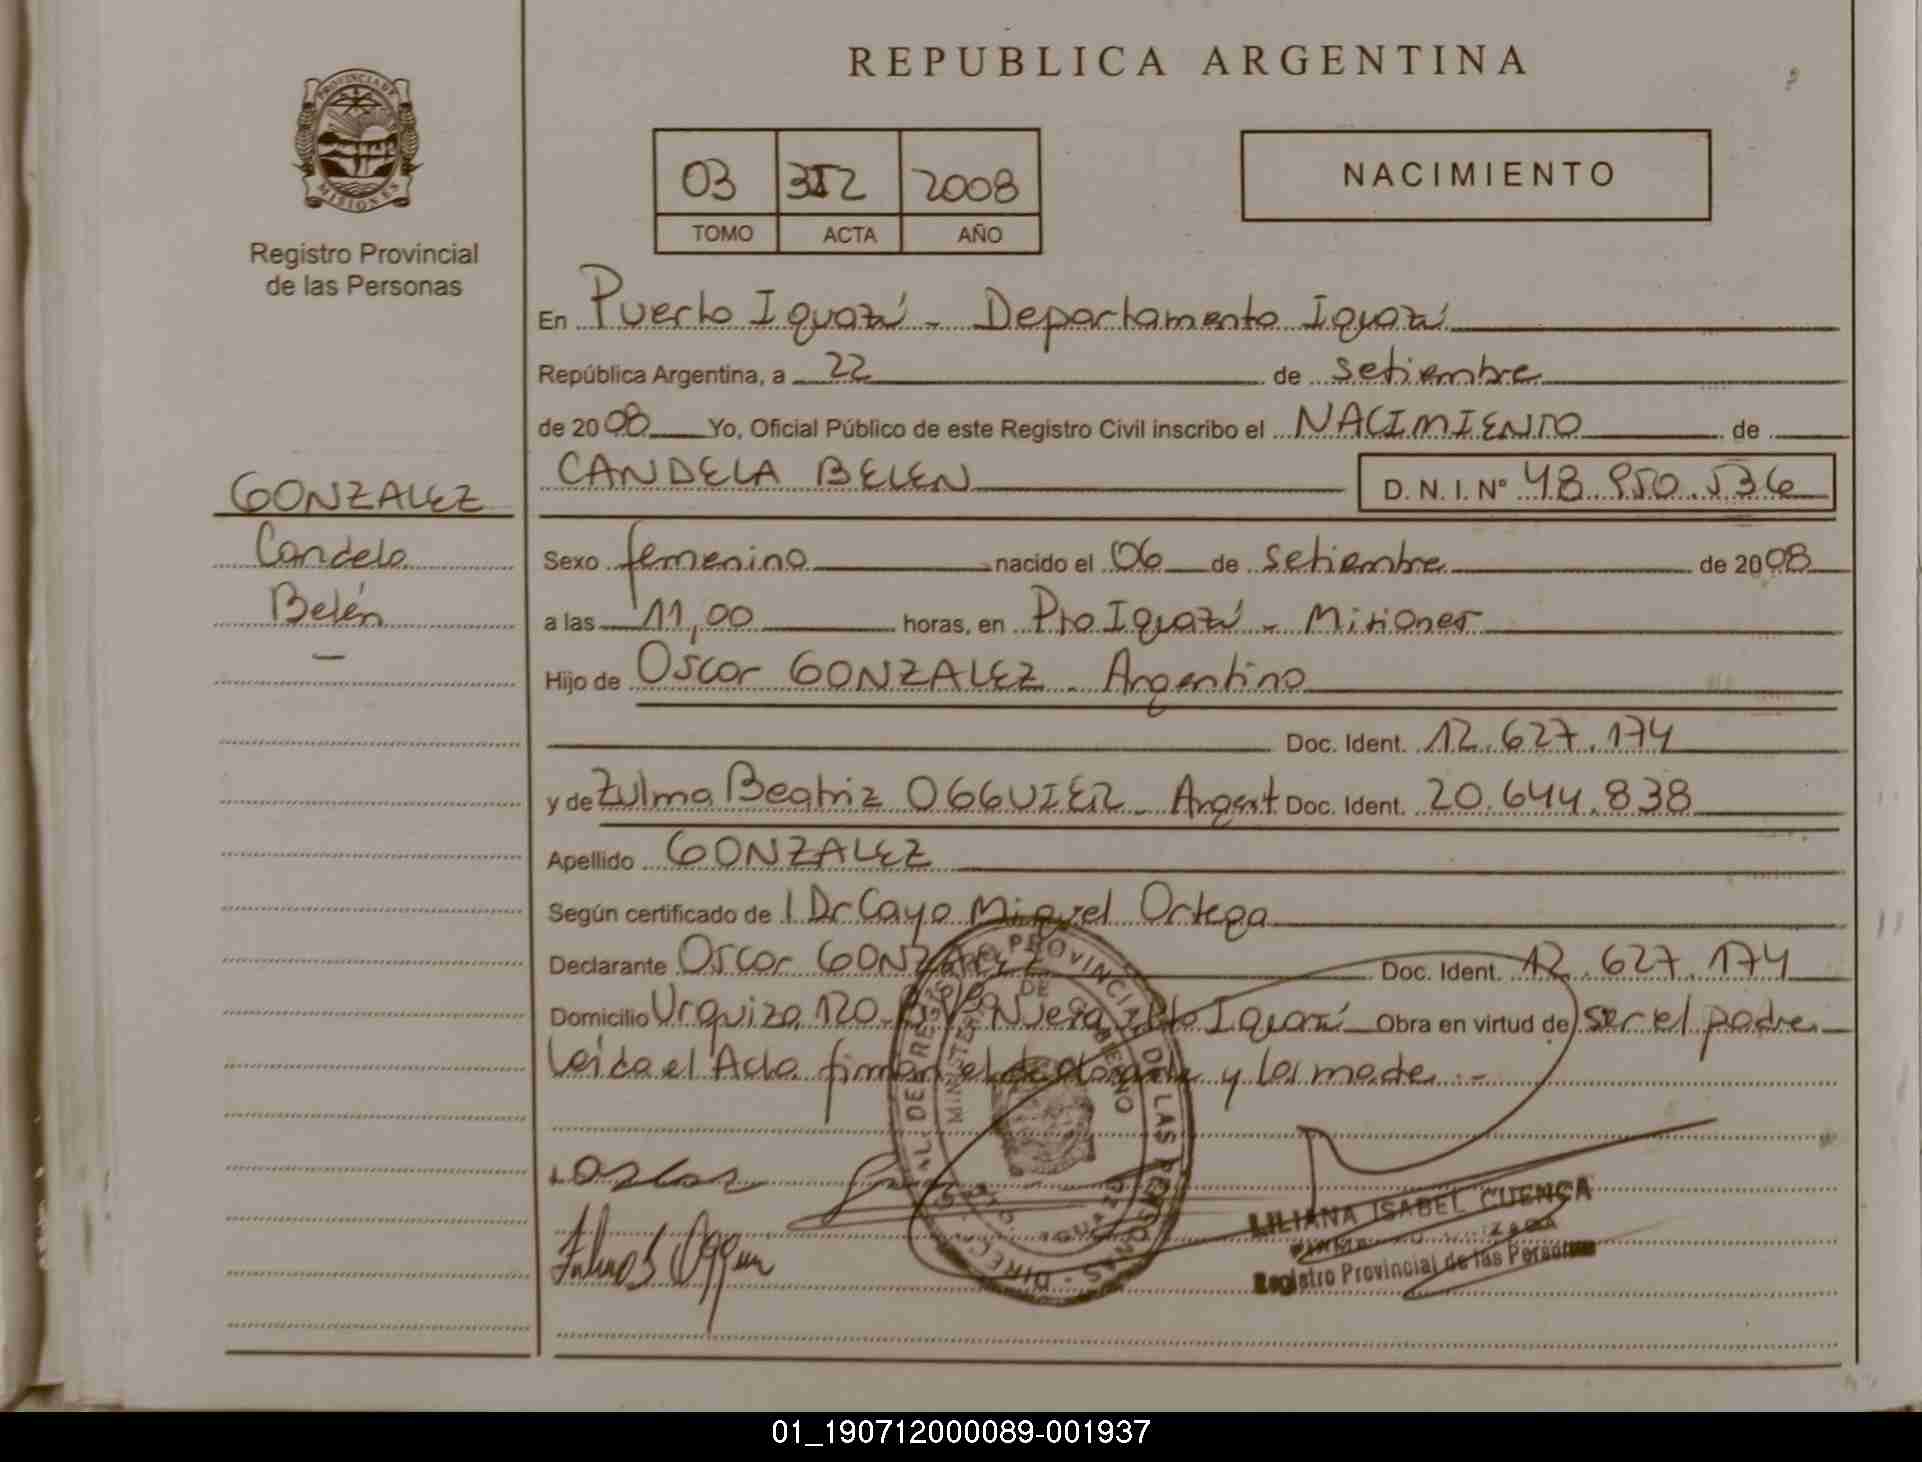 REPUBLICA ARGENTINA
PROVINCIA DE
MISIONES
Registro Provincial
de las Personas
03 2008
TOMO ACTA AÑO
NACIMIENTO
En Puerto Iguazú - Departamento Iguazú
República Argentina, a 22 de setiembre
de 2008 Yo, Oficial Público de este Registro Civil inscribo el NACIMIENTO de
CANDELA BELEN D. N. I. Nº 48.950.536
GONZALEZ
Candela
Belén
Sexo femenino nacido el 06 de setiembre de 2008
a las 11,00 horas, en Pto Iguazú - Misiones
Hijo de Oscar GONZALEZ - Argentino
Doc. Ident. 12.627.174
y de Zulma Beatriz OGGUIER - Argent Doc. Ident. 20.644.838
Apellido GONZALEZ
Según certificado de l Dr Cayo Miguel Ortega
Declarante Oscar GONZALEZ Doc. Ident. 12.627.174
Domicilio Urquiza 120 - Pto Iguazú Obra en virtud de ser el padre
Leida el Acta firman el declarante y la madre.-
DIRECC. DE PROVINCIAL DE LAS PERSONAS
MINISTERIO DE GOBIERNO
IGUAZU
LILIANA ISABEL CUENCA
Registro Provincial de las Personas
01_190712000089-001937